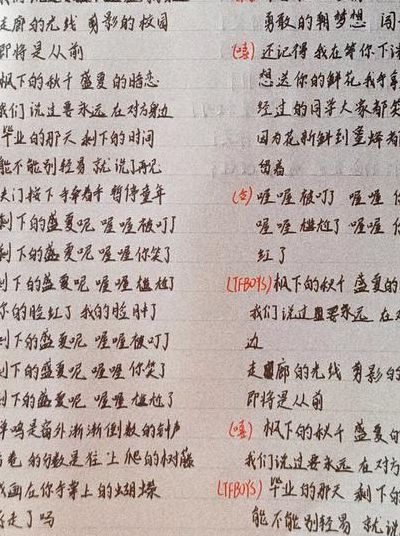 走廊的光线 剪影的校园
即将是从前
枫下的秋千 盛夏的暗恋
我们说过要永远 在对方身边
毕业的那天 剩下的时间
能不能别轻易 就说了再见
快门按下 手牵着手 暂停童年
剩下的盛夏呢 喔喔被叮了
剩下的盛夏呢 喔喔你笑了
剩下的盛夏呢 喔喔尴尬了
你的脸红了 我的脸肿了
剩下的盛夏呢 喔喔被叮了
剩下的盛夏呢 喔喔你笑了
剩下的盛夏呢 喔喔尴尬了
蝉鸣是窗外渐渐倒数的钟声
的分数是往上爬的树藤
画在你手掌上的蝴蝶
走了吗
勇敢的朝梦想
(嘻) 还记得 我在等你下
想送你的鲜花 我手
经过的同学 大家都笑
因为花新鲜到蜜蜂
留着
(合) 喔喔被叮了 喔喔
喔喔 尴尬了 喔喔
红了
(TFBOYS) 枫下的秋千 盛夏的
我们说过要永远 在对
边
走廊的光线 剪影的
即将是从前
(嘻) 枫下的秋千 盛夏的
我们说过要永远 在对方
(TFBOYS) 毕业的那天 剩下的
能不能别轻易 就说